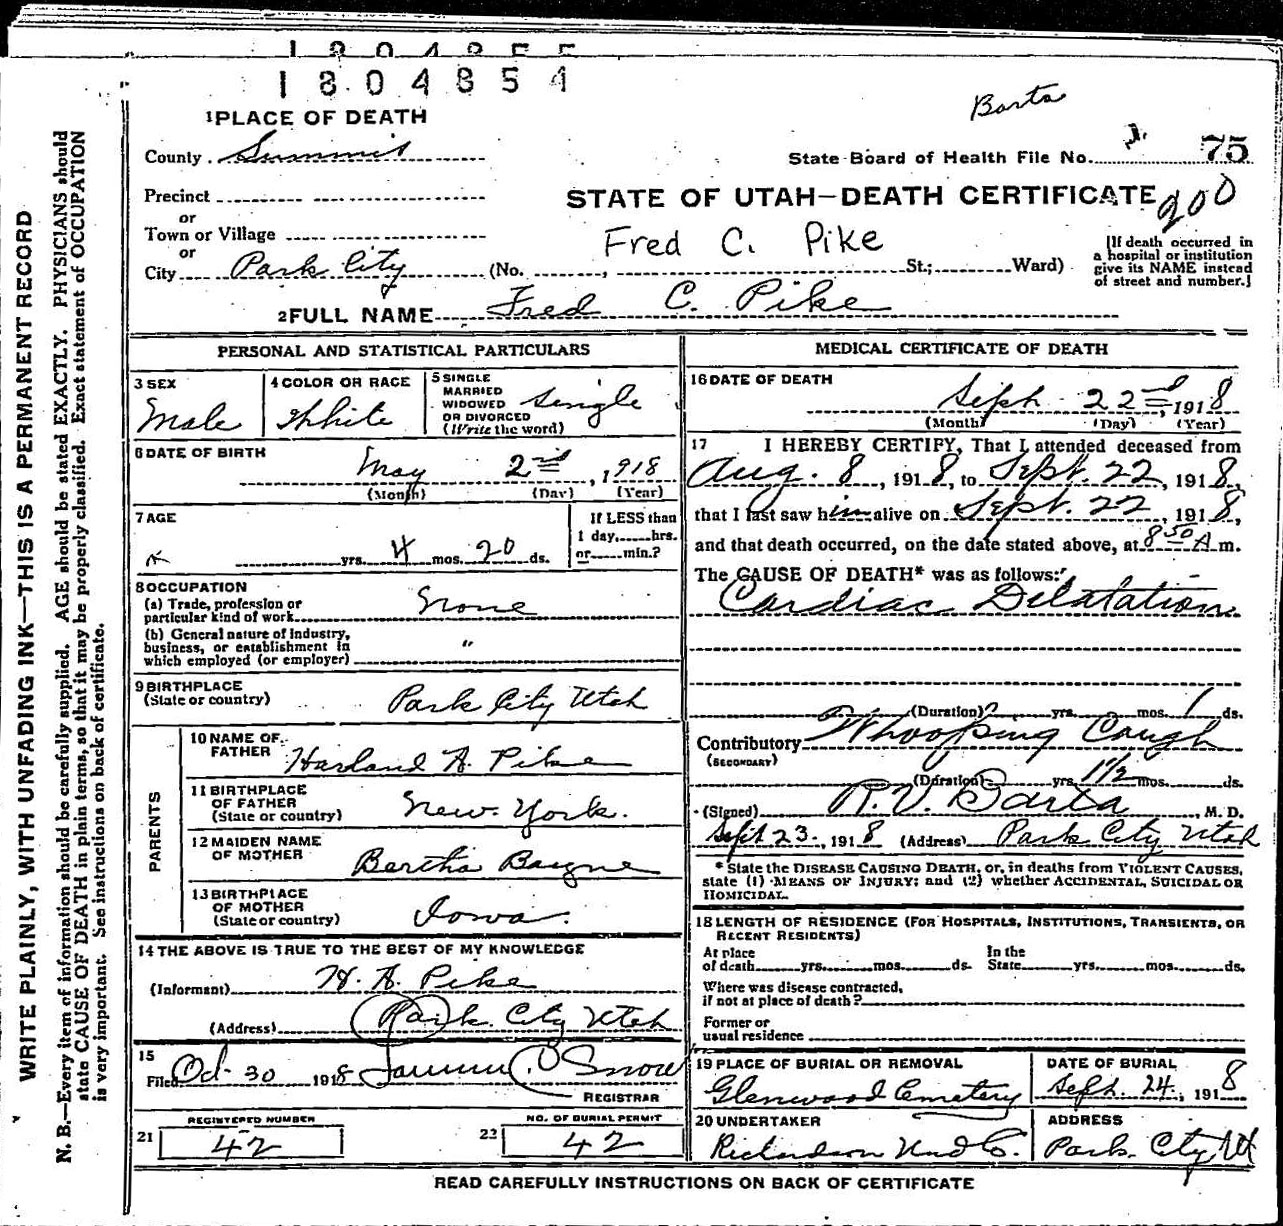 1804855
1804854
Barta
1 PLACE OF DEATH
County Summit
State Board of Health File No. 75
Precinct
STATE OF UTAH—DEATH CERTIFICATE
200
or
Town or Village
Fred C. Pike
or
City Park City (No. , St.; Ward)
[If death occurred in
a hospital or institution
give its NAME instead
of street and number.]
2 FULL NAME Fred C. Pike
PERSONAL AND STATISTICAL PARTICULARS
3 SEX
Male
4 COLOR OR RACE
White
5 SINGLE
MARRIED
WIDOWED
OR DIVORCED
(Write the word)
Single
6 DATE OF BIRTH
May 2nd, 1918
(Month) (Day) (Year)
7 AGE
yrs. 4 mos. 20 ds.
If LESS than
1 day, hrs.
or min.?
8 OCCUPATION
(a) Trade, profession or
particular kind of work None
(b) General nature of industry,
business, or establishment in
which employed (or employer) "
9 BIRTHPLACE
(State or country) Park City Utah
PARENTS
10 NAME OF
FATHER Harland A. Pike
11 BIRTHPLACE
OF FATHER
(State or country) New York.
12 MAIDEN NAME
OF MOTHER Bertha Bayne
13 BIRTHPLACE
OF MOTHER
(State or country) Iowa.
14 THE ABOVE IS TRUE TO THE BEST OF MY KNOWLEDGE
(Informant) H. A. Pike
(Address) Park City Utah
15
Filed Oct 30 1918 Snow
REGISTRAR
REGISTERED NUMBER
21 42
NO. OF BURIAL PERMIT
22 42
MEDICAL CERTIFICATE OF DEATH
16 DATE OF DEATH
Sept. 22nd, 1918
(Month) (Day) (Year)
17 I HEREBY CERTIFY, That I attended deceased from
Aug. 8, 1918, to Sept. 22, 1918,
that I last saw him alive on Sept. 22, 1918,
and that death occurred, on the date stated above, at 8 50 A m.
The CAUSE OF DEATH* was as follows:
Cardiac Dilatation
(Duration) yrs. mos. 1 ds.
Contributory Whooping Cough
(SECONDARY)
(Duration) yrs. 1 1/2 mos. ds.
(Signed) R. V. Barta, M. D.
Sept 23, 1918 (Address) Park City Utah
* State the DISEASE CAUSING DEATH, or, in deaths from VIOLENT CAUSES,
state (1) MEANS OF INJURY; and (2) whether ACCIDENTAL, SUICIDAL OR
HOMICIDAL.
18 LENGTH OF RESIDENCE (FOR HOSPITALS, INSTITUTIONS, TRANSIENTS, OR
RECENT RESIDENTS)
At place
of death yrs. mos. ds.
In the
State yrs. mos. ds.
Where was disease contracted,
if not at place of death?
Former or
usual residence
19 PLACE OF BURIAL OR REMOVAL
Glenwood Cemetery
DATE OF BURIAL
Sept. 24, 1918
20 UNDERTAKER
Richardson Und Co.
ADDRESS
Park City Ut
READ CAREFULLY INSTRUCTIONS ON BACK OF CERTIFICATE
WRITE PLAINLY, WITH UNFADING INK—THIS IS A PERMANENT RECORD
N. B.—Every item of information should be carefully supplied. AGE should be stated EXACTLY. PHYSICIANS should
state CAUSE OF DEATH in plain terms, so that it may be properly classified. Exact statement of OCCUPATION
is very important. See instructions on back of certificate.